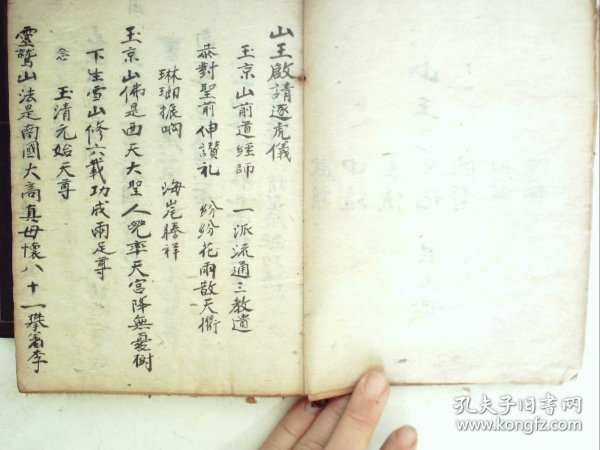 山王啟請逐虎儀
玉京山前道經師 一派流通三教遺
恭對聖前伸讃礼 紛紛花雨散天衢
琳瑯振响 海岸騰祥
玉京山佛是西天大聖人兜率天宮降無憂樹
下生雪山修六載功成兩足尊
念 玉清元始天尊
靈鷲山法是南國大高真母懷八十一攀着李
孔夫子旧书网
www.kongfz.com